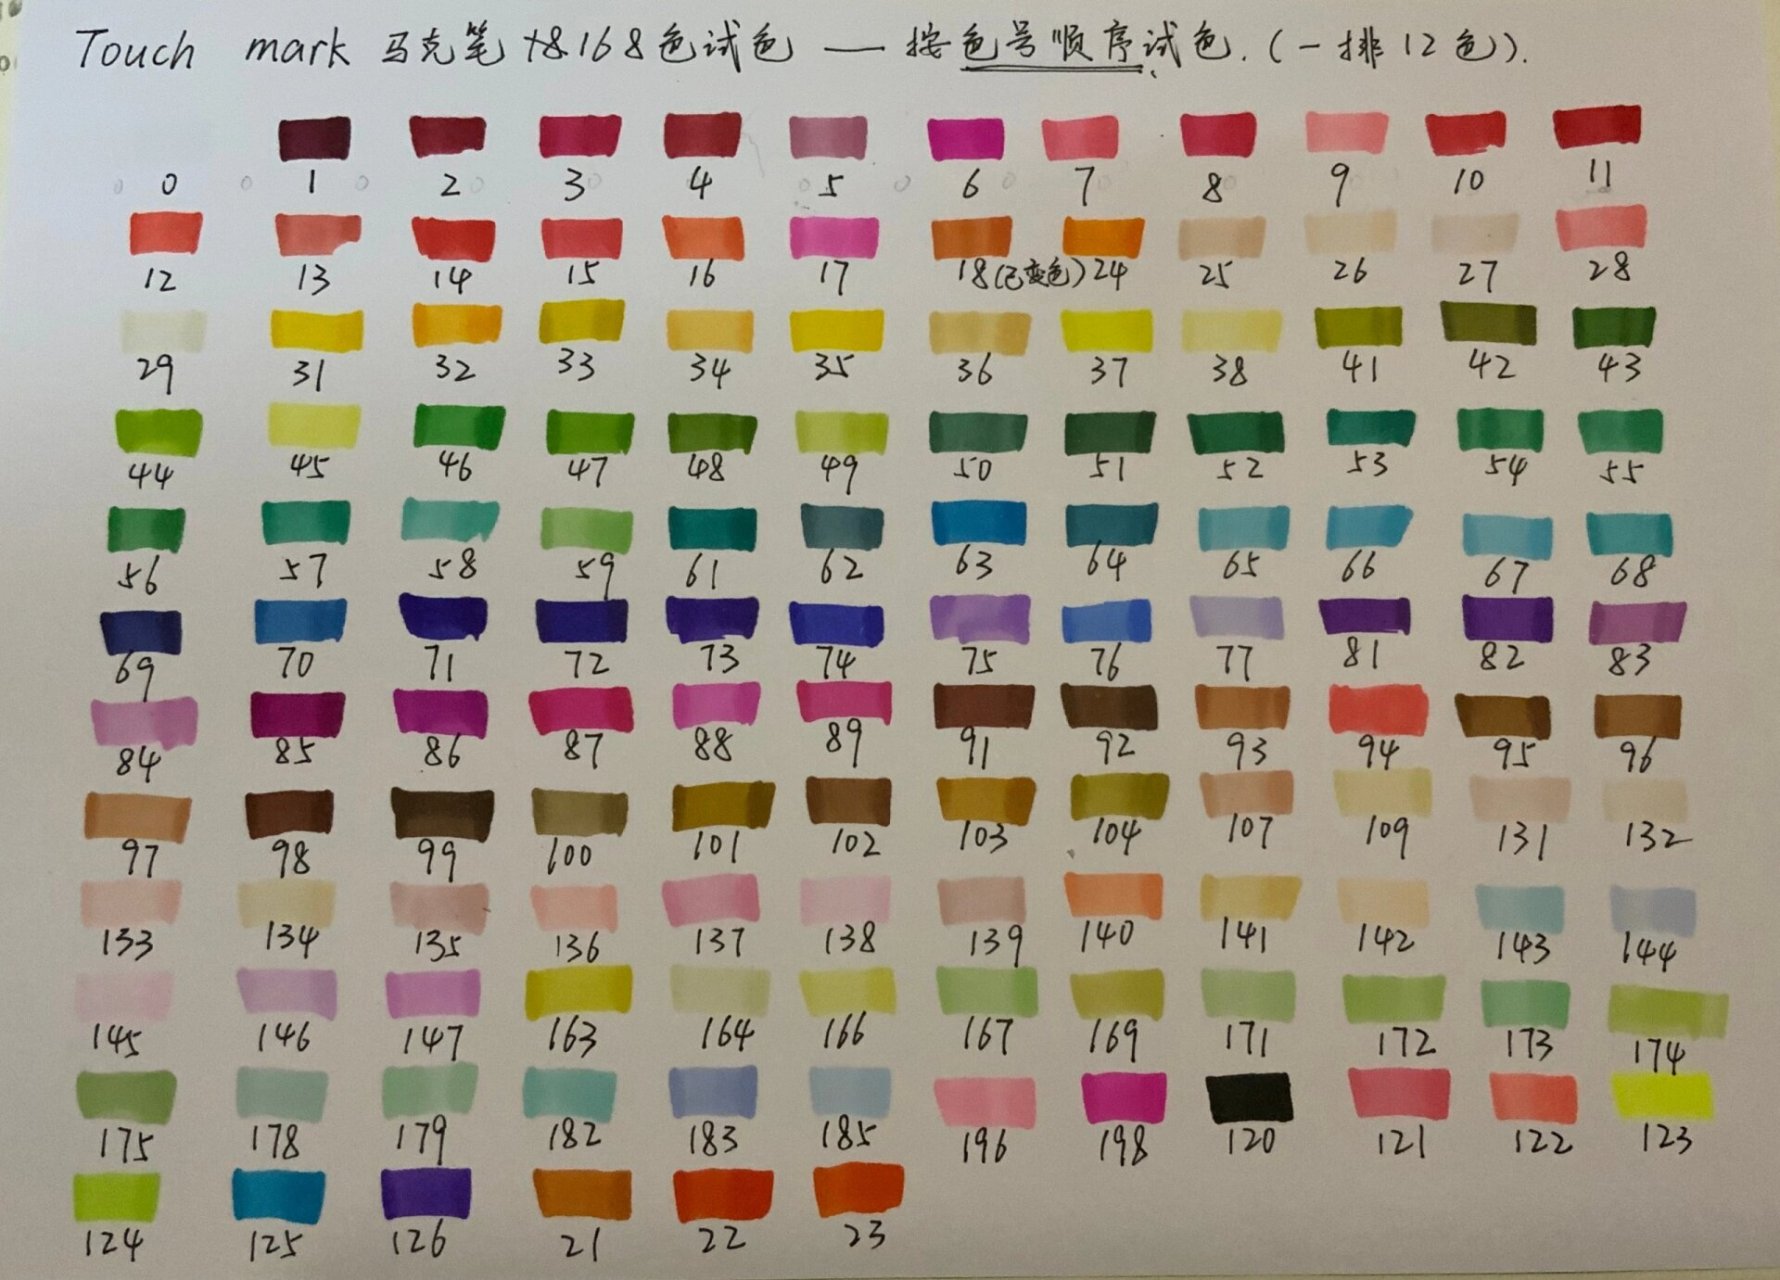 Touch mark 马克笔 t8168色试色 — 按色号顺序试色.(一排12色).
0 1 2 3 4 5 6 7 8 9 10 11
12 13 14 15 16 17 18(已变色) 24 25 26 27 28
29 31 32 33 34 35 36 37 38 41 42 43
44 45 46 47 48 49 50 51 52 53 54 55
56 57 58 59 61 62 63 64 65 66 67 68
69 70 71 72 73 74 75 76 77 81 82 83
84 85 86 87 88 89 91 92 93 94 95 96
97 98 99 100 101 102 103 104 107 109 131 132
133 134 135 136 137 138 139 140 141 142 143 144
145 146 147 163 164 166 167 169 171 172 173 174
175 178 179 182 183 185 196 198 120 121 122 123
124 125 126 21 22 23